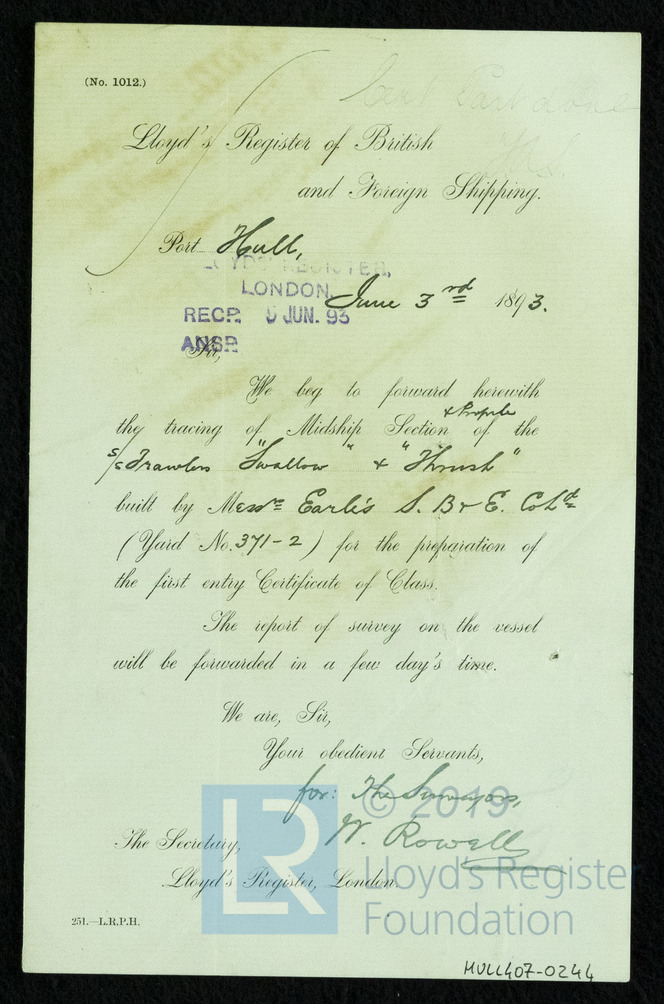 (No. 1012.)
Lloyd's Register of British
and Foreign Shipping.
Port Hull,
LLOYD'S REGISTER,
LONDON.
June 3rd 1893.
RECD. 5 JUN. 93
ANSD.
Sir,
We beg to forward herewith
& Profile
the tracing of Midship Section of the
s/s Trawlers "Swallow" & "Thrush"
built by Messrs Earle's S. B & E. Co Ltd
(Yard No. 371-2) for the preparation of
the first entry Certificate of Class.
The report of survey on the vessel
will be forwarded in a few day's time.
We are, Sir,
Your obedient Servants,
for: The Surveyors,
W. Rowell
The Secretary,
Lloyd's Register, London.
251.—L.R.P.H.
LR
© 2019
Lloyd's Register
Foundation
HULL407-0244